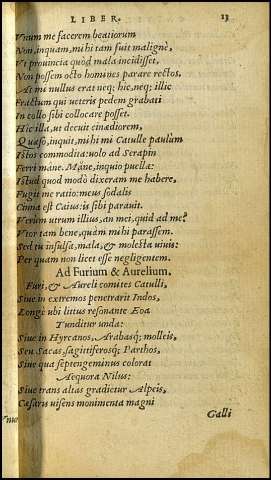 LIBER. 13
Vnum me facerem beatiorum
Non, inquam, mihi tam fuit malignè,
Vt prouincia quòd mala incidisset,
Non possem octo homines parare rectos.
At mi nullus erat neq; hic, neq; illic
Fractum qui ueteris pedem grabati
In collo sibi collocare posset.
Hic illa, ut decuit cinædiorem,
Quæso, inquit, mihi mi Catulle paulùm
Istos commodita: uolo ad Serapin
Ferri máne. Máne, inquio puellæ:
Istud quod modò dixeram me habere,
Fugit me ratio: meus sodalis
Cinna est Caius: is sibi parauit.
Verùm utrum illius, an mei, quid ad me?
Vtor tam bene, quàm mihi parassem.
Sed tu insulsa, mala, & molesta uiuis:
Per quam non licet esse negligentem.
Ad Furium & Aurelium.
Furi, & Aureli comites Catulli,
Siue in extremos penetrarit Indos,
Longè ubi littus resonante Eoa
Tunditur unda:
Siue in Hyrcanos, Arabasq; molleis,
Seu Sacas, sagittiferosq; Parthos,
Siue qua septengeminus colorat
Aequora Nilus:
Siue trans altas gradietur Alpeis,
Cæsaris uisens monimenta magni
Galli